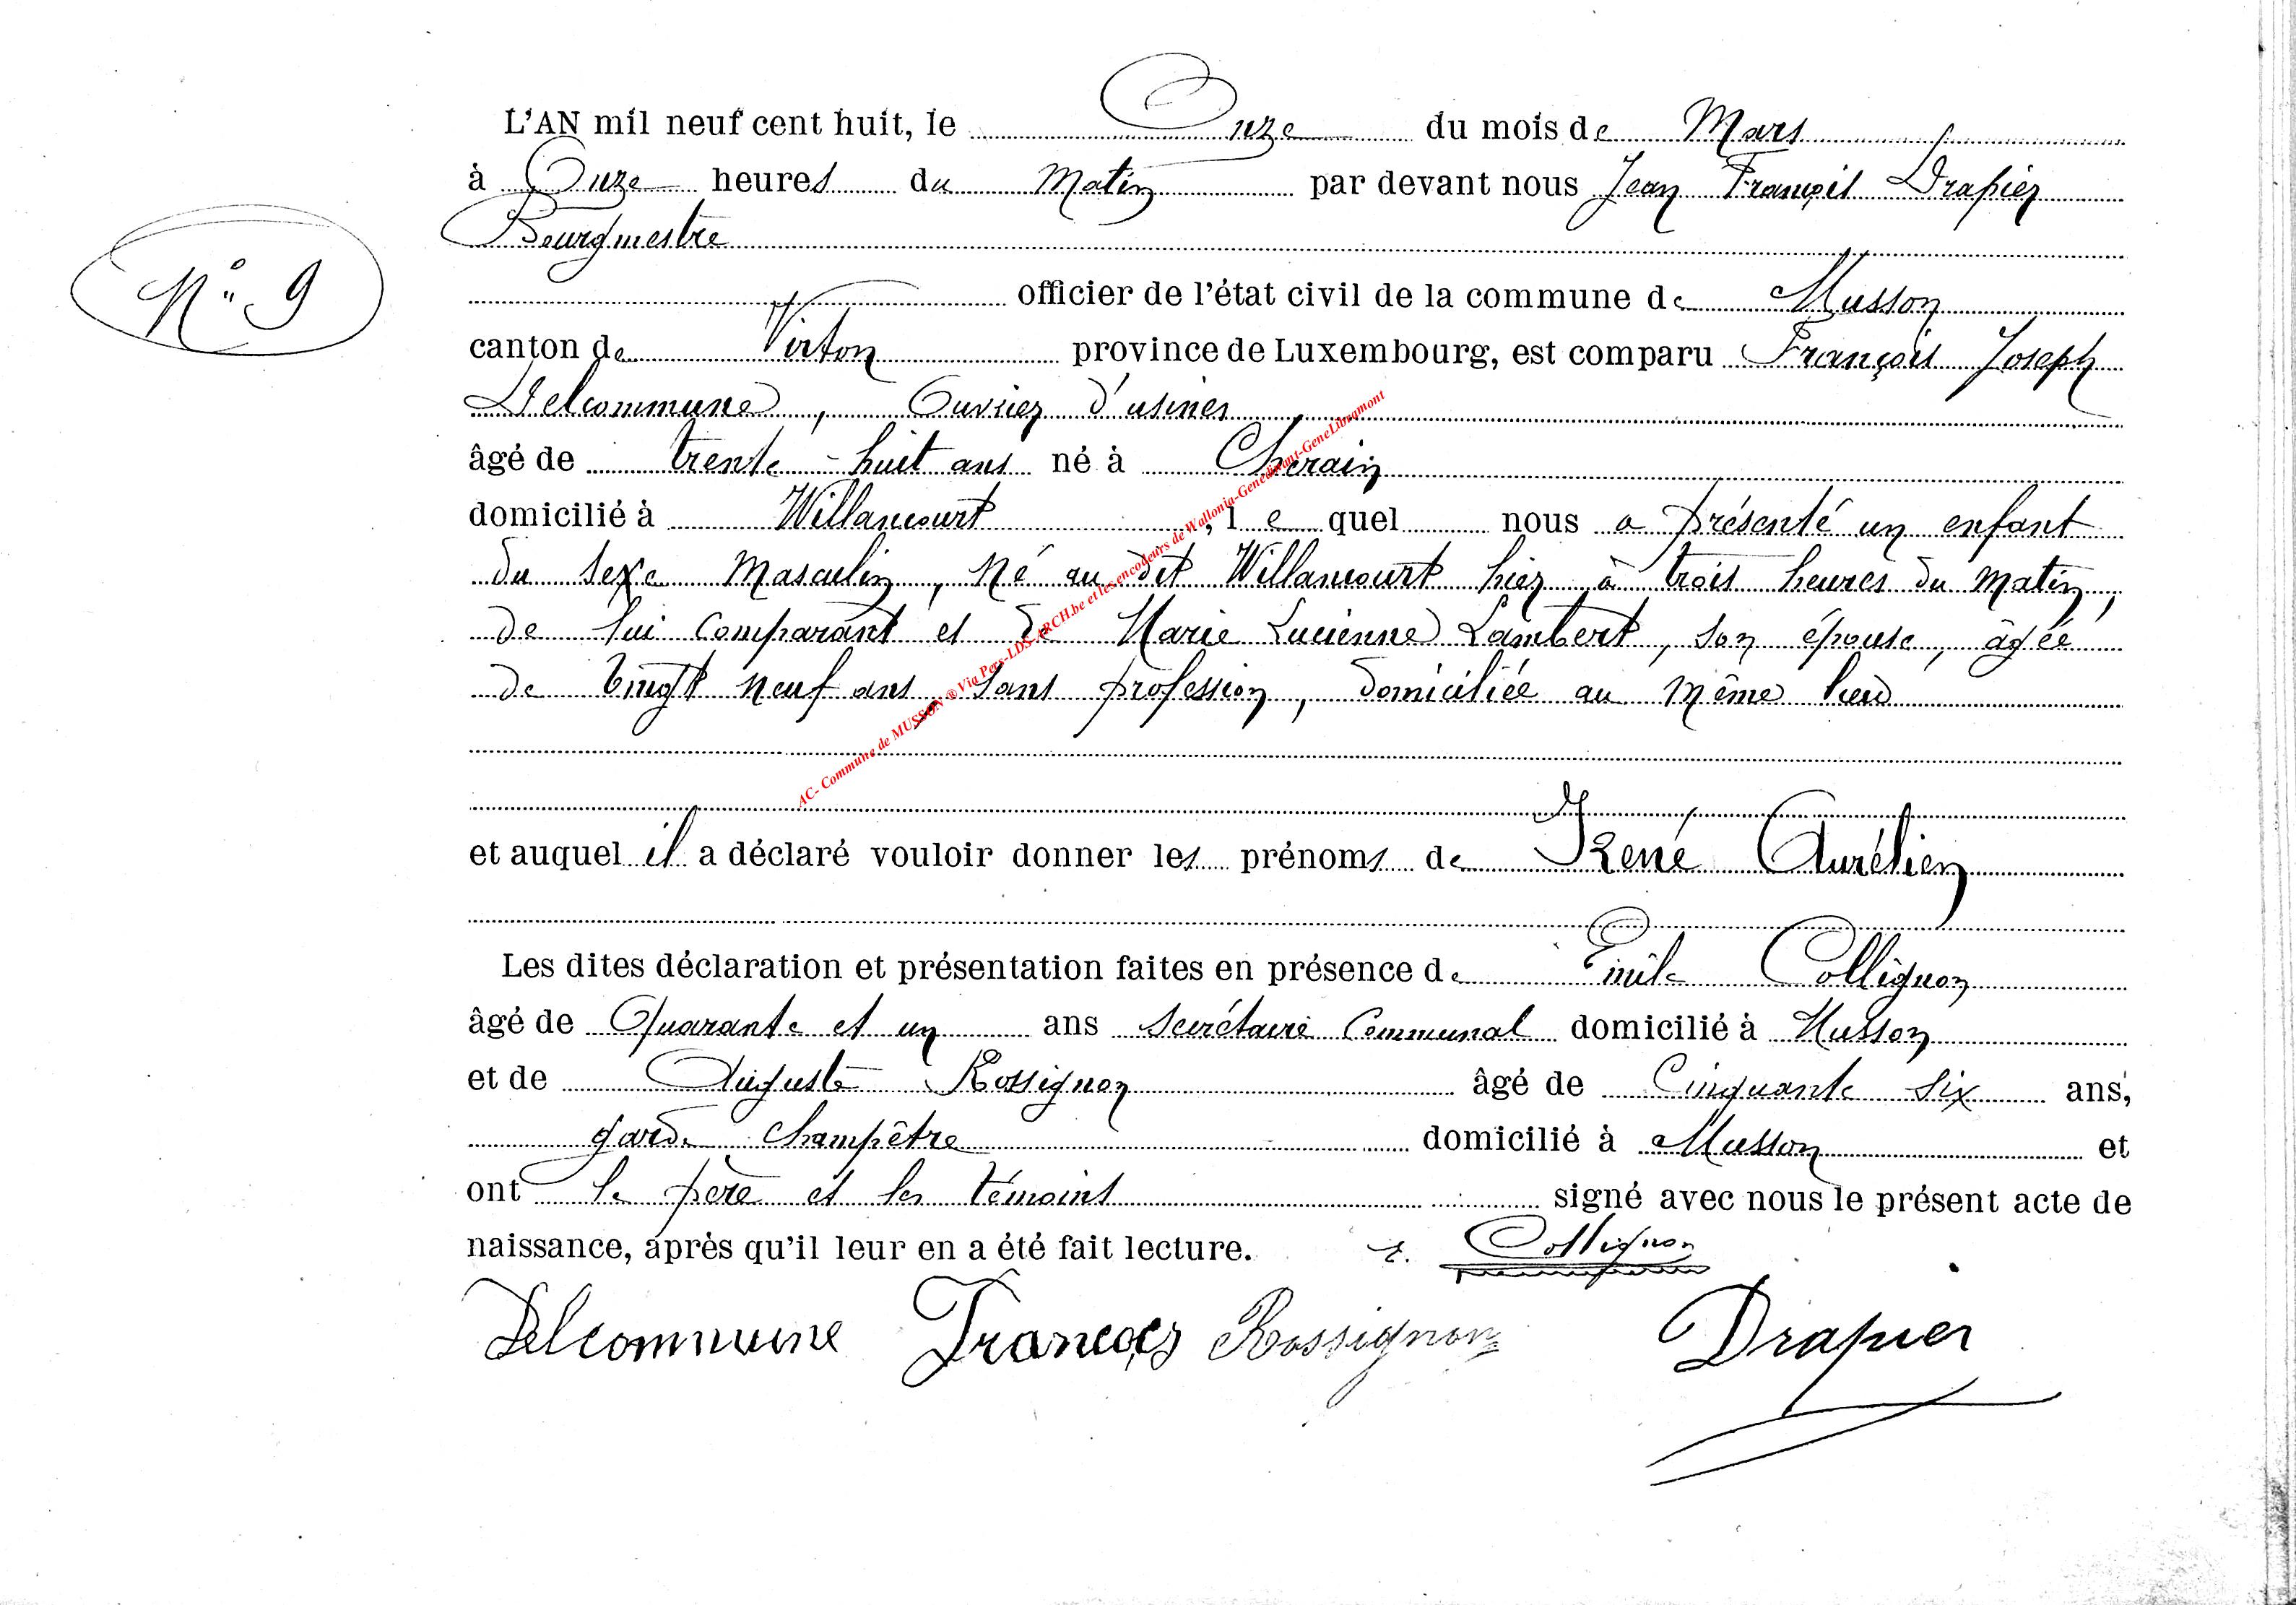 L'AN mil neuf cent huit, le Onze du mois de Mars
à Onze heures du Matin par devant nous Jean François Drapier
Bourgmestre
N° 9
officier de l'état civil de la commune de Musson
canton de Virton province de Luxembourg, est comparu François Joseph
Delcommune, Ouvrier d'usines
âgé de trente-huit ans né à Cherain
domicilié à Willancourt, lequel nous a présenté un enfant
du sexe Masculin, né au dit Willancourt hier à trois heures du matin,
de lui comparant et de Marie Lucienne Lambert, son épouse, âgée
de vingt neuf ans sans profession, domiciliée au même lieu
AC- Commune de MUSSON ® Via Pers-LDS-ARCH.be et les encodeurs de Wallonia-Genedinant-GeneLibramont
et auquel il a déclaré vouloir donner les prénoms de René Aurélien
Les dites déclaration et présentation faites en présence de Emile Collignon
âgé de Quarante et un ans secrétaire Communal domicilié à Musson
et de Auguste Rossignon âgé de Cinquante six ans,
garde champêtre domicilié à Musson et
ont le père et les témoins signé avec nous le présent acte de
naissance, après qu'il leur en a été fait lecture. E. Collignon
Delcommune François Rossignon Drapier